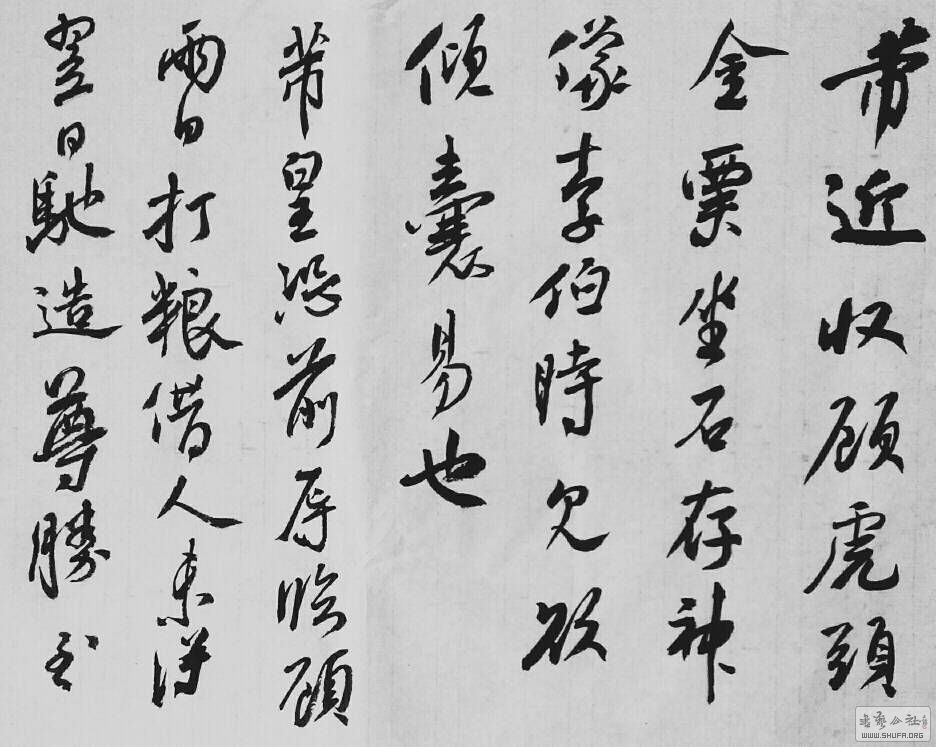 芾近收顧虎頭
金粟坐石存神
像李伯時見欲
傾囊易也
芾皇恐前辱臨顧
兩日打粮借人未得
翌日馳造尊勝
書藝公社
WWW.SHUFA.ORG